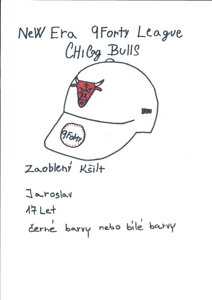 New Era 9Forty League
CHiCag BUllS
9Forty
Zaoblený Kšilt
Jaroslav
17 Let
černé barvy nebo bílé barvy